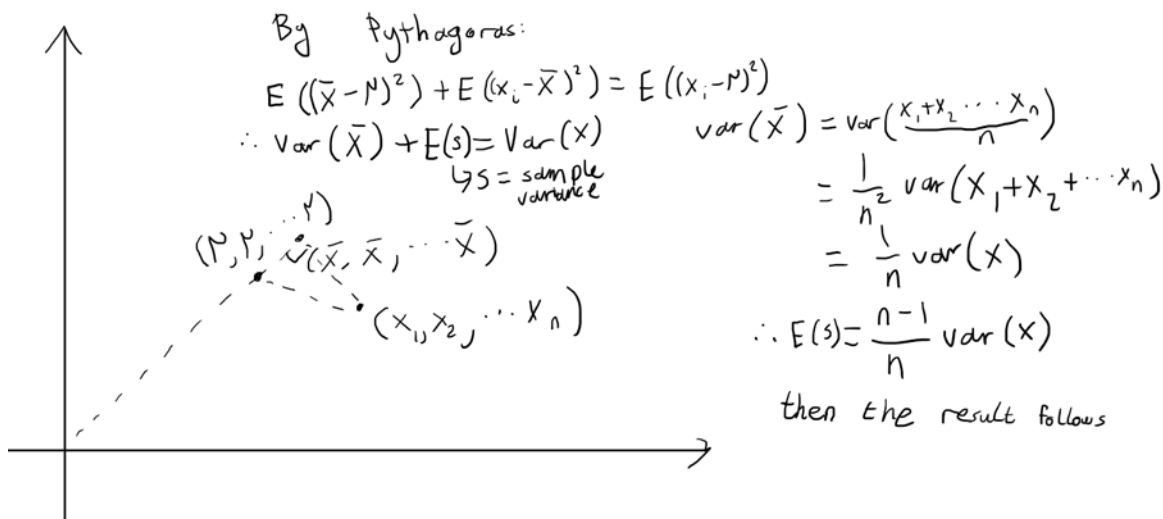 By Pythagoras:
E((x̄-μ)²)+E((xᵢ-x̄)²)=E((xᵢ-μ)²)
∴ Var(x̄)+E(s)=Var(x)
↳s=sample
variance
(μ,μ,...μ)
(x̄,x̄,...x̄)
(x₁,x₂,...xₙ)
var(x̄)=var((x₁+x₂...xₙ)/n)
=1/n² var(x₁+x₂+...xₙ)
=1/n var(x)
∴E(s)=(n-1)/n var(x)
then the result follows